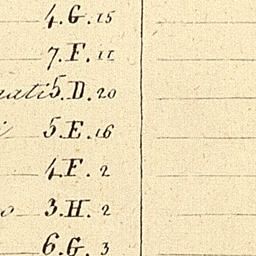 4. G. 15
7. F. 11
5. D. 20
5. E. 16
4. F. 2
3. H. 2
6. G. 3